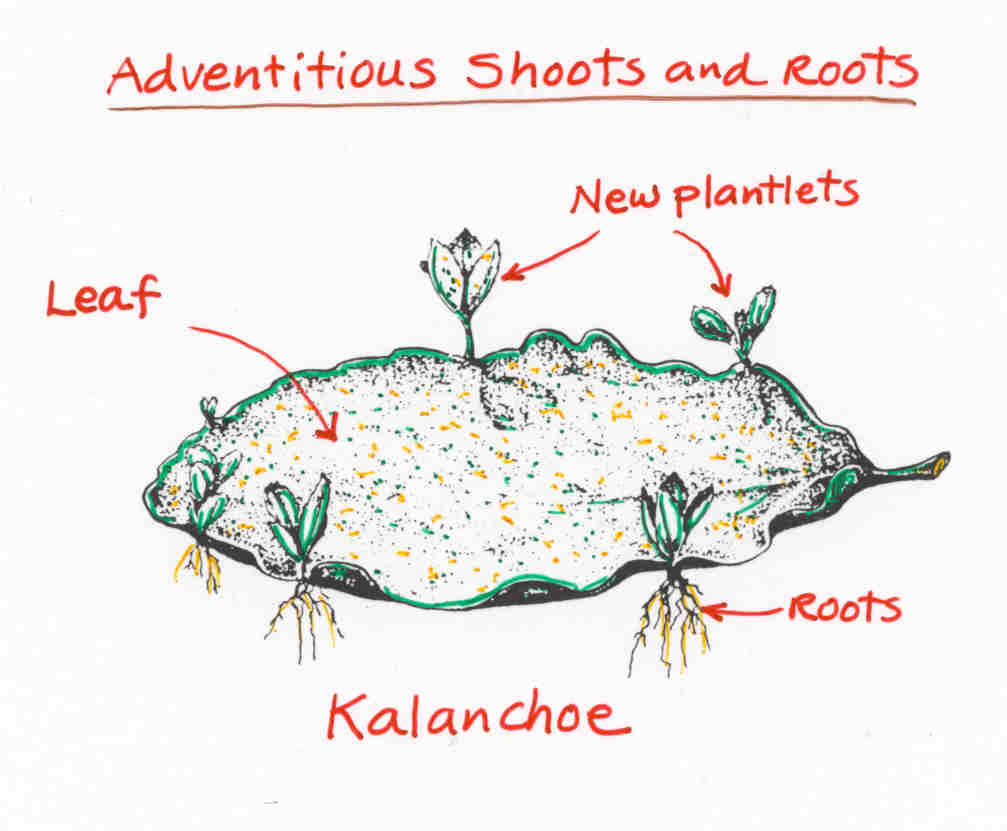 Adventitious Shoots and Roots
New plantlets
Leaf
Roots
Kalanchoe